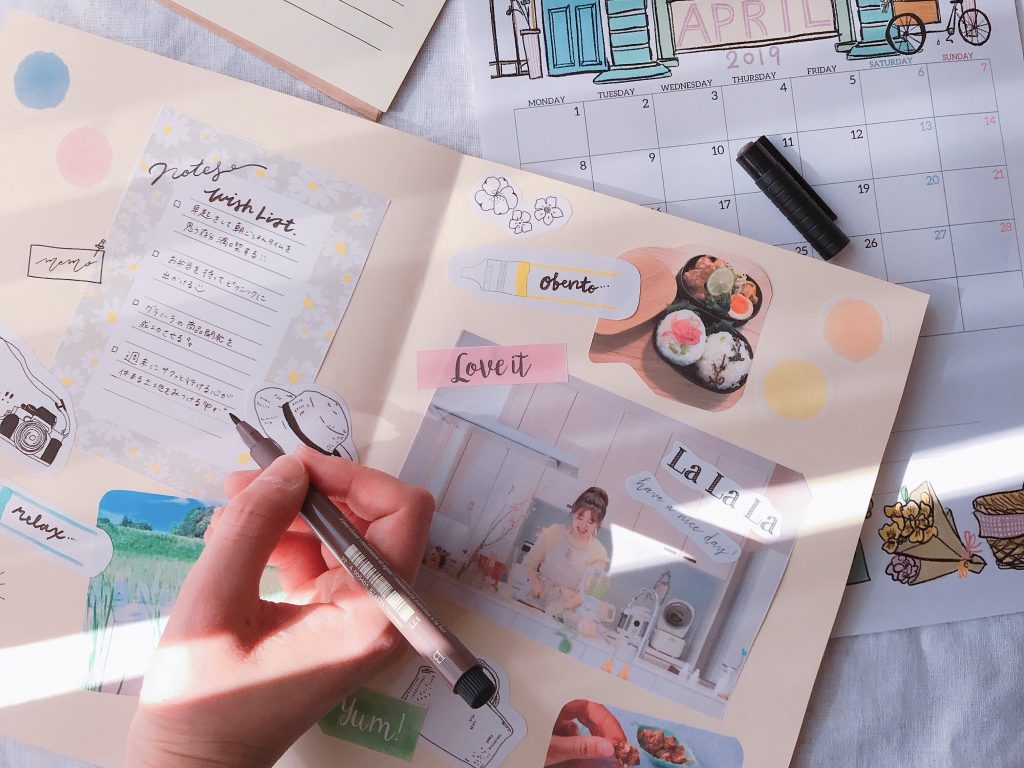 APRIL
2019
MONDAY TUESDAY WEDNESDAY THURSDAY FRIDAY SATURDAY SUNDAY
1 2 3 4 5 6 7
8 9 10 11 12 13 14
16 17 19 20 21
25 26 27 28
notes
Wish List.
早起きして朝ごはんタイムを
思う存分満喫する!!
お弁当を持ってピクニックに
出かける
グラノーラの商品開発を
成功させる
週末にサクッと行ける心が
休まる土地をみつける
memo
relax...
obento...
Love it
La La La
have a nice day!
Yum!
B